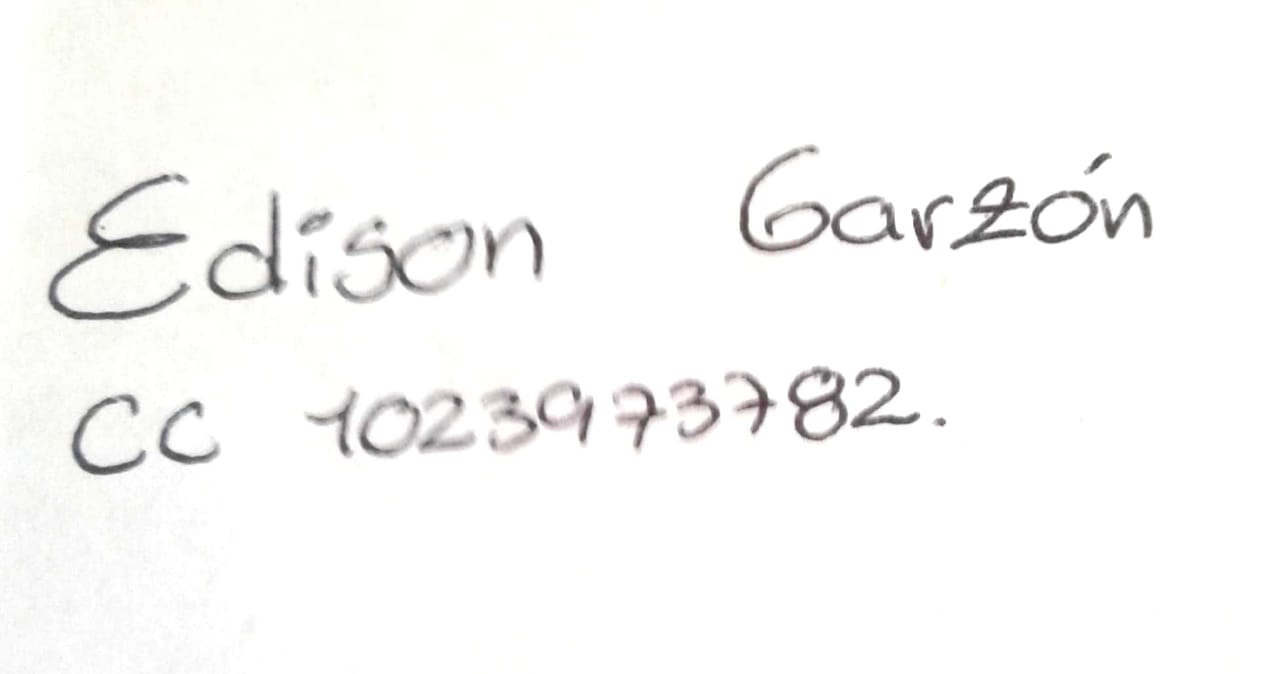 Edison Garzón
CC 1023973782.